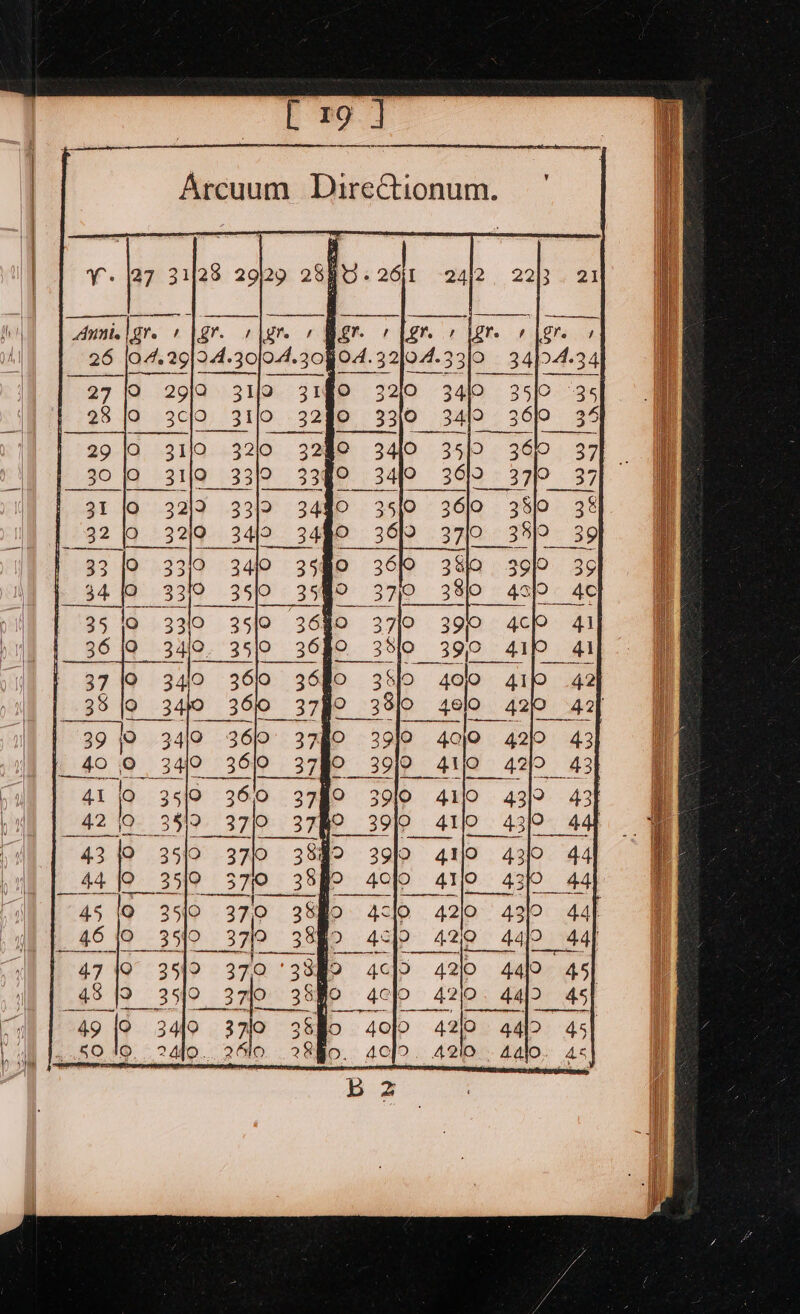 [ 19 ]
Arcuum Directionum.
♈. 27 31 28 29 29 28 ♉. 26 1 24 2 22 3 21
Anni. gr. ′ gr. ′ gr. ′ gr. ′ gr. ′ gr. ′ gr. ′
26 0A.29 0A.30 0A.30 0A.32 0A.33 0 34 0A.34
27 0 29 0 31 0 31 0 32 0 34 0 35 0 35
28 0 30 0 31 0 32 0 33 0 34 0 36 0 36
29 0 31 0 32 0 32 0 34 0 35 0 36 0 37
30 0 31 0 33 0 33 0 34 0 36 0 37 0 37
31 0 32 0 33 0 34 0 35 0 36 0 38 0 38
32 0 32 0 34 0 34 0 36 0 37 0 38 0 39
33 0 33 0 34 0 35 0 36 0 38 0 39 0 39
34 0 33 0 35 0 35 0 37 0 38 0 40 0 40
35 0 33 0 35 0 36 0 37 0 39 0 40 0 41
36 0 34 0 35 0 36 0 38 0 39 0 41 0 41
37 0 34 0 36 0 36 0 38 0 40 0 41 0 42
38 0 34 0 36 0 37 0 38 0 40 0 42 0 42
39 0 34 0 36 0 37 0 39 0 40 0 42 0 43
40 0 34 0 36 0 37 0 39 0 41 0 42 0 43
41 0 35 0 36 0 37 0 39 0 41 0 43 0 43
42 0 35 0 37 0 37 0 39 0 41 0 43 0 44
43 0 35 0 37 0 38 0 39 0 41 0 43 0 44
44 0 35 0 37 0 38 0 40 0 41 0 43 0 44
45 0 35 0 37 0 38 0 40 0 42 0 43 0 44
46 0 35 0 37 0 38 0 40 0 42 0 44 0 44
47 0 35 0 37 0 38 0 40 0 42 0 44 0 45
48 0 35 0 37 0 38 0 40 0 42 0 44 0 45
49 0 34 0 37 0 38 0 40 0 42 0 44 0 45
50 0 34 0 36 0 38 0 40 0 42 0 44 0 45
B 2